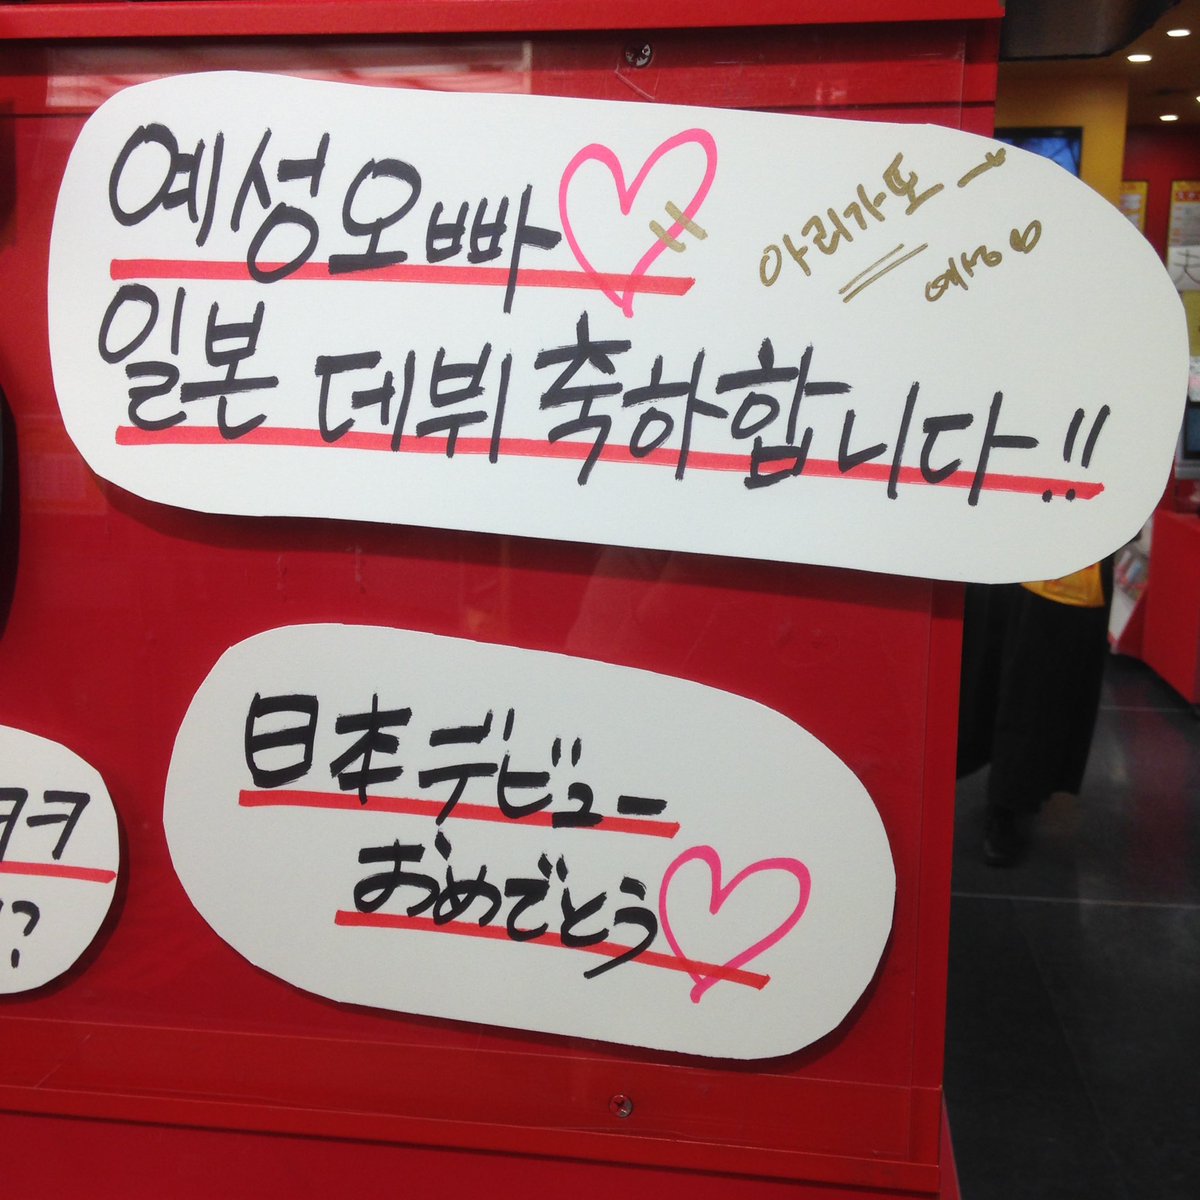 예성오빠♡
아리가또 ~
예성
일본 데뷔 축하합니다!!
日本デビュー
おめでとう♡
ㅋㅋ
?